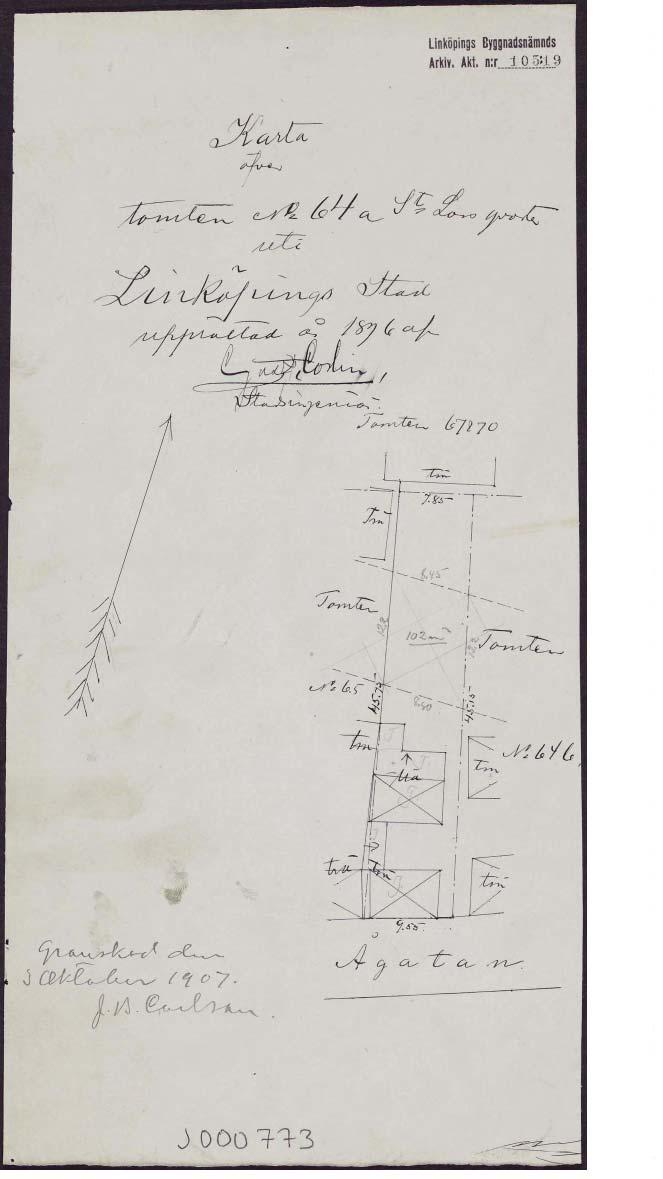 Linköpings Byggnadsnämnds
Arkiv. Akt. n:r 10519
Karta
öfver
tomten No 64 a St Lars qvarter
uti
Linköpings Stad
upprättad år 1896 af
Stadsingeniör.
Tomten 67&70
trä
7.85
Trä
8.45
Tomten
12.2
102 m²
12.2
Tomten
No 65
8.80
45.75
45.15
trä
T
No 64 b.
T
trä
trä
T
trä
trä
T
trä
9.55
Ågatan
Granskad den
3 Oktober 1907.
J. B. Carlson.
J000773